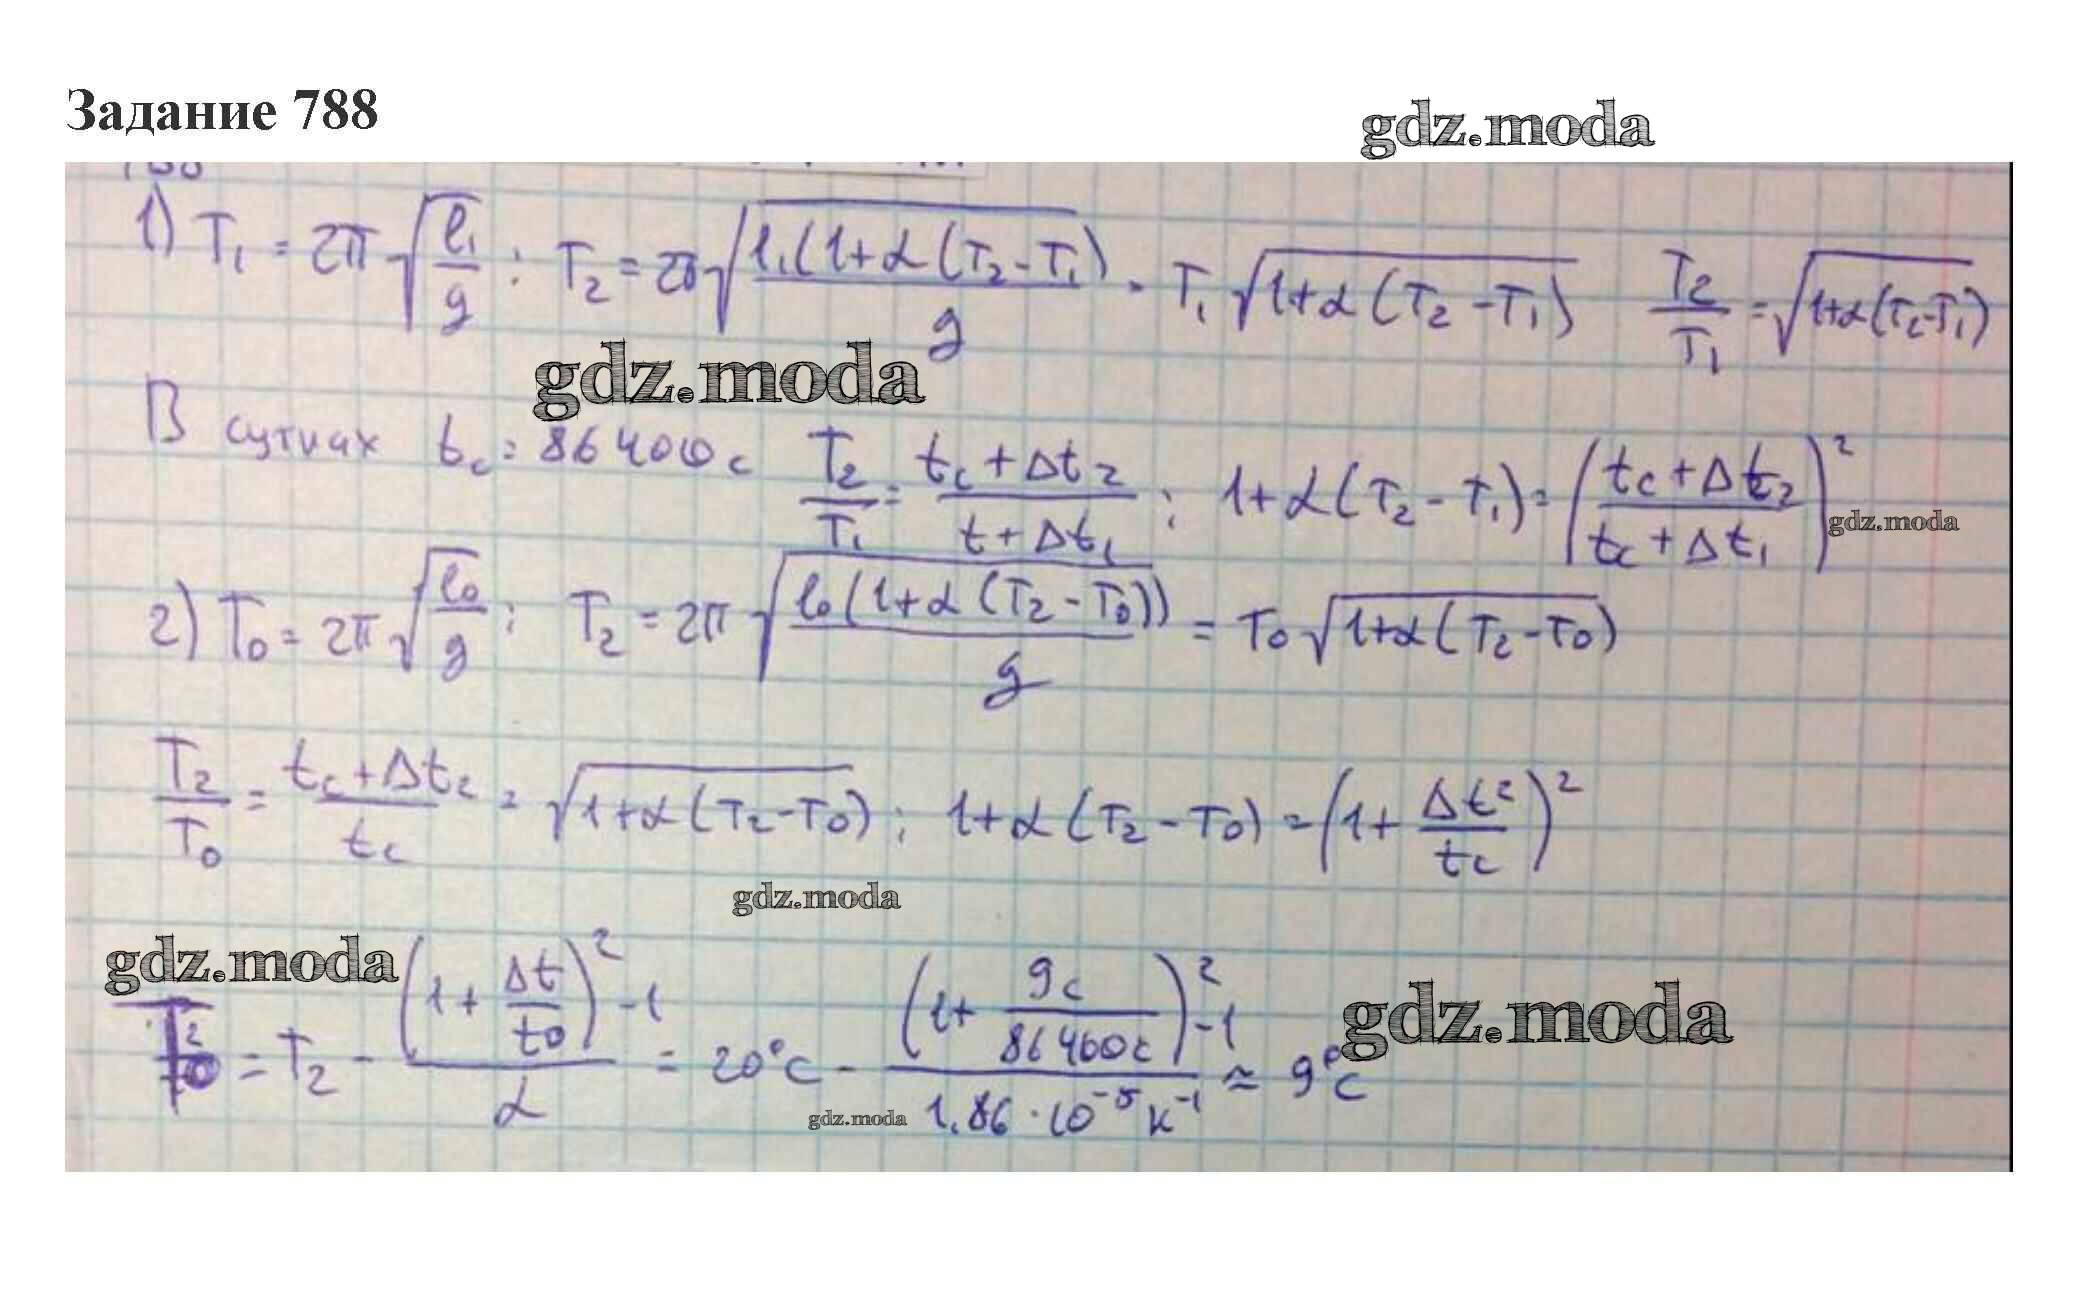 Задание 788
gdz.moda
1) T₁ = 2π√(l₁/g) ; T₂ = 2π√(l₁(1+α(T₂-T₁)/g) = T₁√(1+α(T₂-T₁) T₂/T₁ = √(1+α(T₂-T₁)
gdz.moda
В сутках tc = 86400 с T₂/T₁ = (tc+Δt₂)/(t+Δt₁) ; 1+α(T₂-T₁) = ((tc+Δt₂)/(tc+Δt₁))²
gdz.moda
2) T₀ = 2π√(l₀/g) ; T₂ = 2π√(l₀(1+α(T₂-T₀))/g) = T₀√(1+α(T₂-T₀)
T₂/T₀ = (tc+Δt₂)/tc = √(1+α(T₂-T₀) ; 1+α(T₂-T₀) = (1+Δt₂/tc)²
gdz.moda
gdz.moda
= T₂ - ((1+Δt/t₀)²-1)/α = 20°C - ((1+9c/86400c)²-1)/(1,86·10⁻⁵ K⁻¹) ≈ 9°C
gdz.moda
gdz.moda